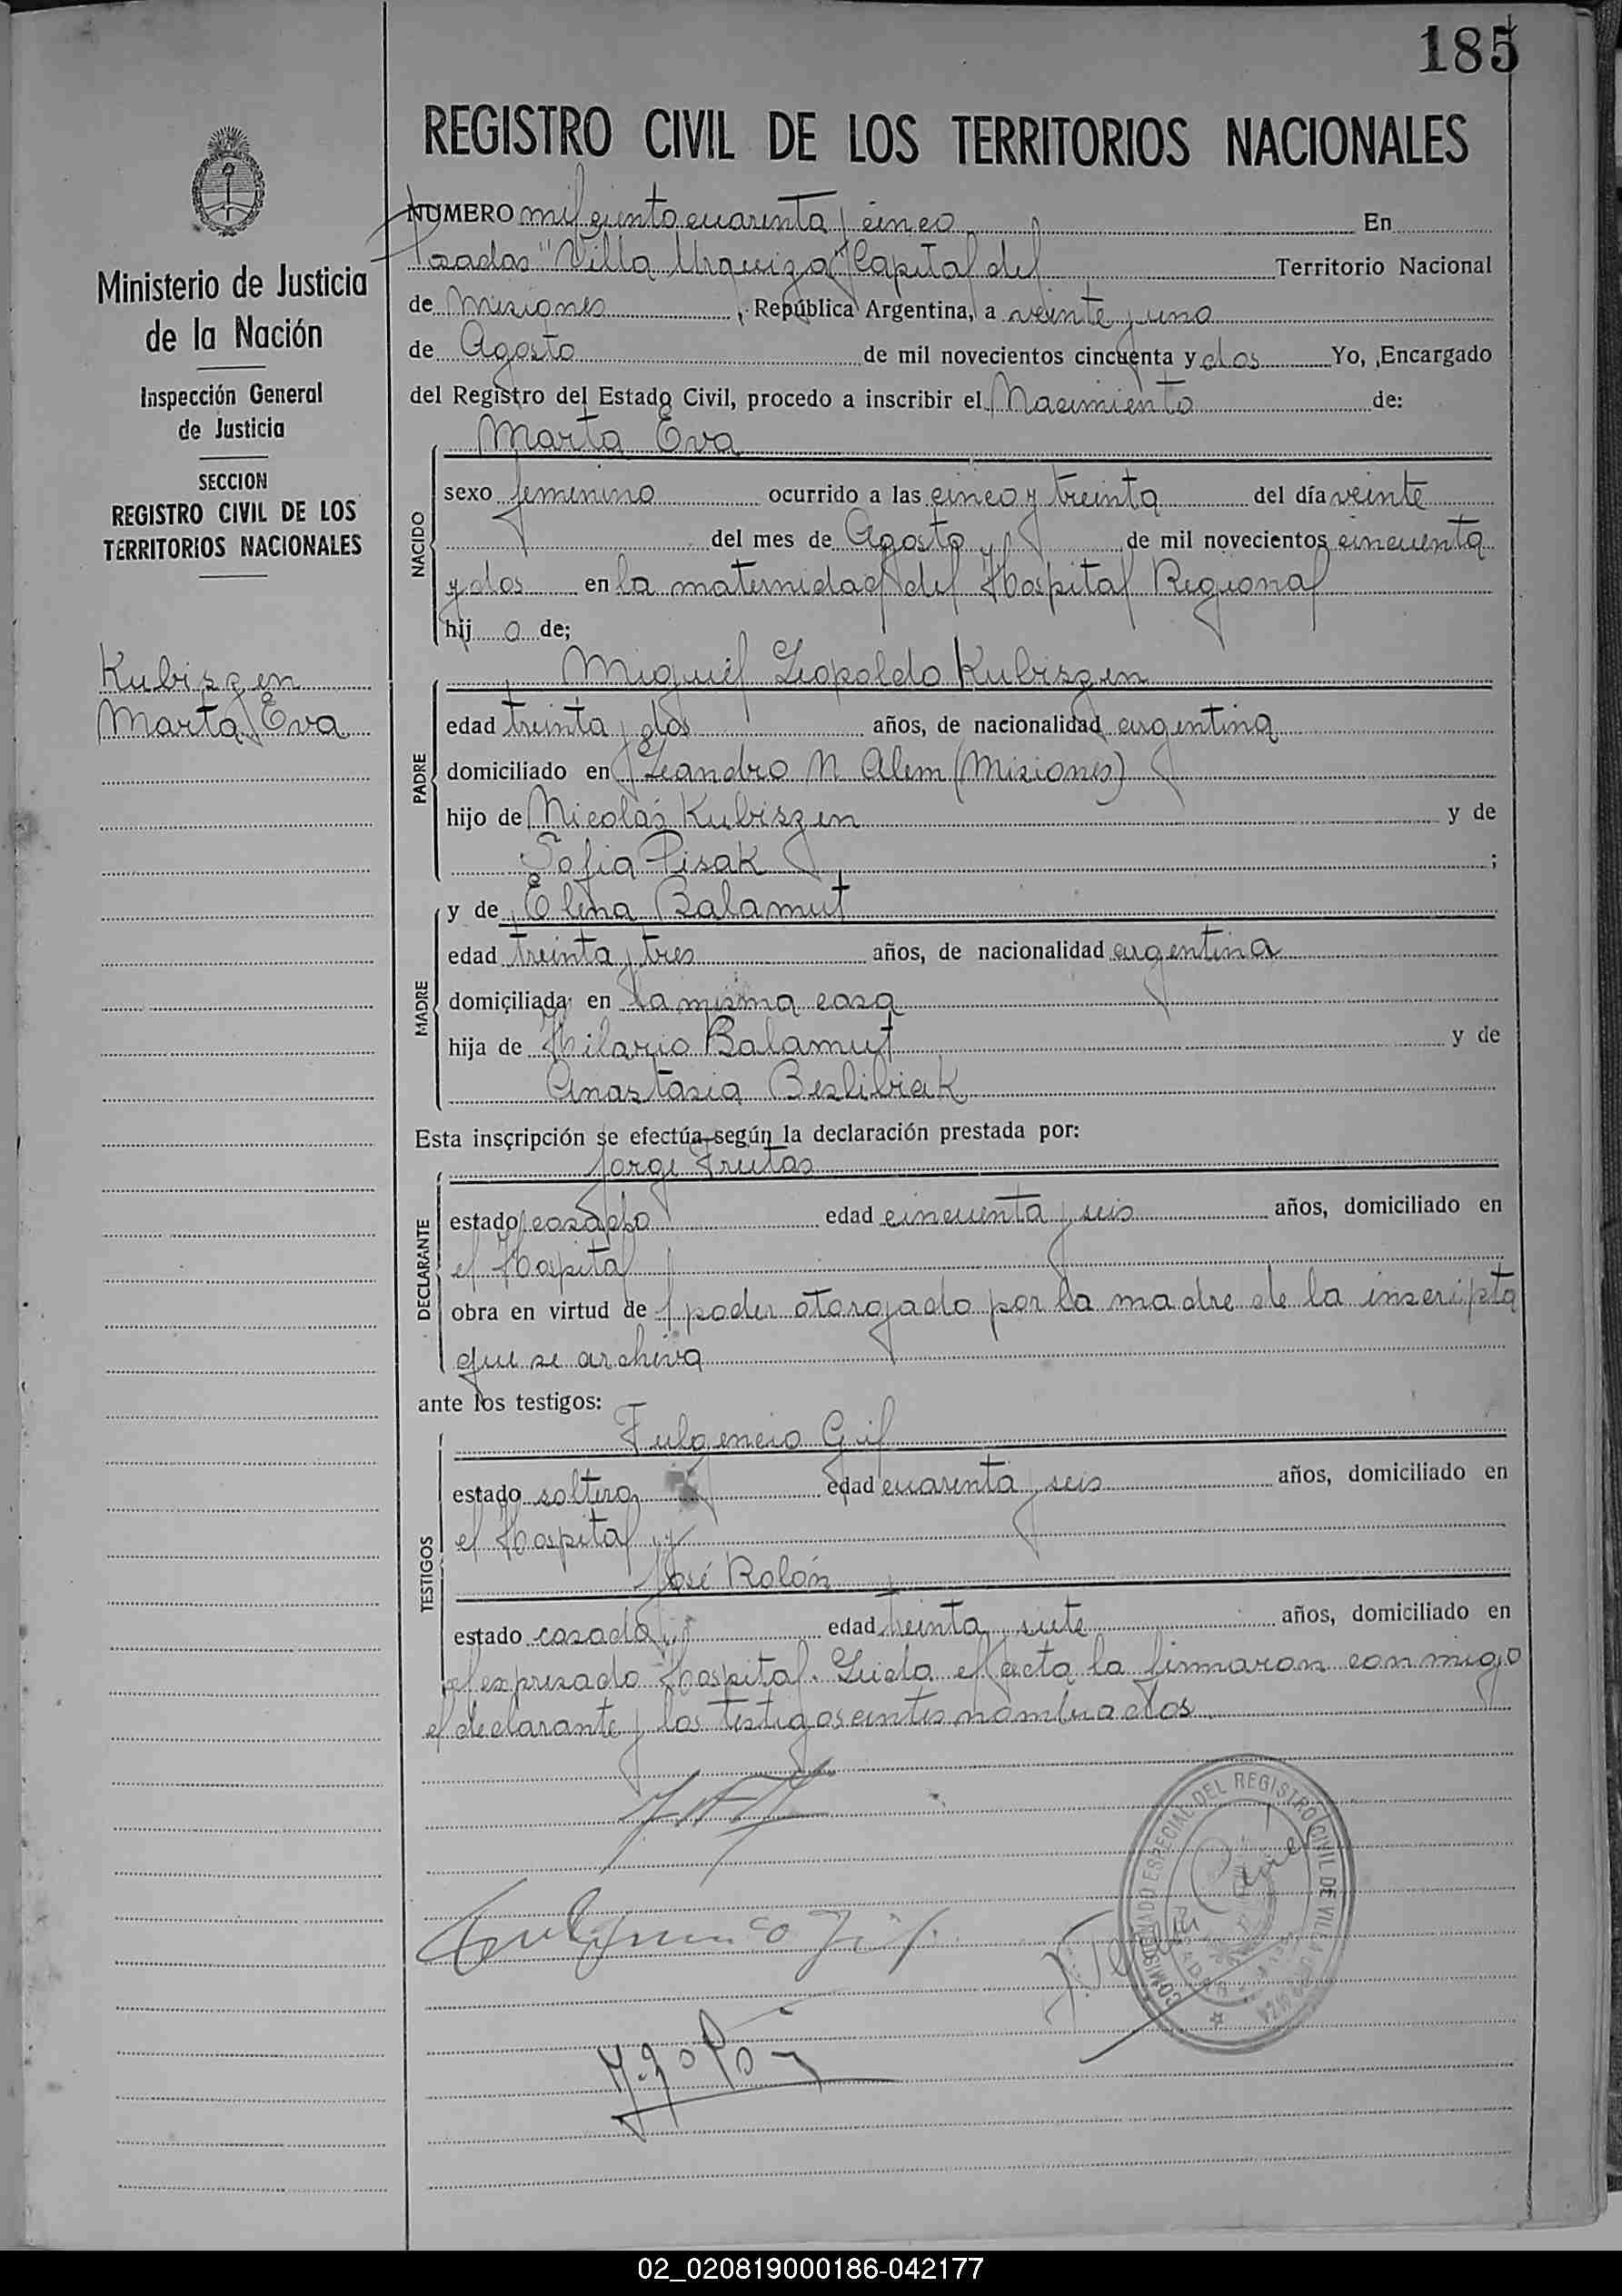 185
REGISTRO CIVIL DE LOS TERRITORIOS NACIONALES
Ministerio de Justicia
de la Nación
Inspección General
de Justicia
SECCION
REGISTRO CIVIL DE LOS
TERRITORIOS NACIONALES
Kubiszen
Marta Eva
NUMERO mil ciento cuarenta y cinco En
Posadas "Villa Urquiza" Capital del Territorio Nacional
de Misiones, República Argentina, a veinte y uno
de Agosto de mil novecientos cincuenta y dos Yo, Encargado
del Registro del Estado Civil, procedo a inscribir el Nacimiento de:
Marta Eva
NACIDO
sexo femenino ocurrido a las cinco y treinta del día veinte
del mes de Agosto de mil novecientos cincuenta
y dos en la maternidad del Hospital Regional
hij a de;
Miguel Leopoldo Kubiszen
PADRE
edad treinta y dos años, de nacionalidad argentina
domiciliado en Leandro N Alem (Misiones)
hijo de Nicolás Kubiszen y de
Sofia Pisak ;
y de Elena Balamut
MADRE
edad treinta y tres años, de nacionalidad argentina
domiciliada en la misma casa
hija de Hilario Balamut y de
Anastasia Beslibiak
Esta inscripción se efectúa según la declaración prestada por:
Jorge Freitas
DECLARANTE
estado casado edad cincuenta y seis años, domiciliado en
el Hospital
obra en virtud de poder otorgado por la madre de la inscripta
que se archiva
ante los testigos:
Fulgencio Gil
TESTIGOS
estado soltero edad cuarenta y seis años, domiciliado en
el Hospital y
José Rolón
estado casado edad treinta y siete años, domiciliado en
el expresado Hospital. Leida el acta la firmaron conmigo
el declarante y los testigos antes nombrados
COMISIONADO ESPECIAL DEL REGISTRO CIVIL DE VILLA URQUIZA
Fulgencio Gil
02_020819000186-042177